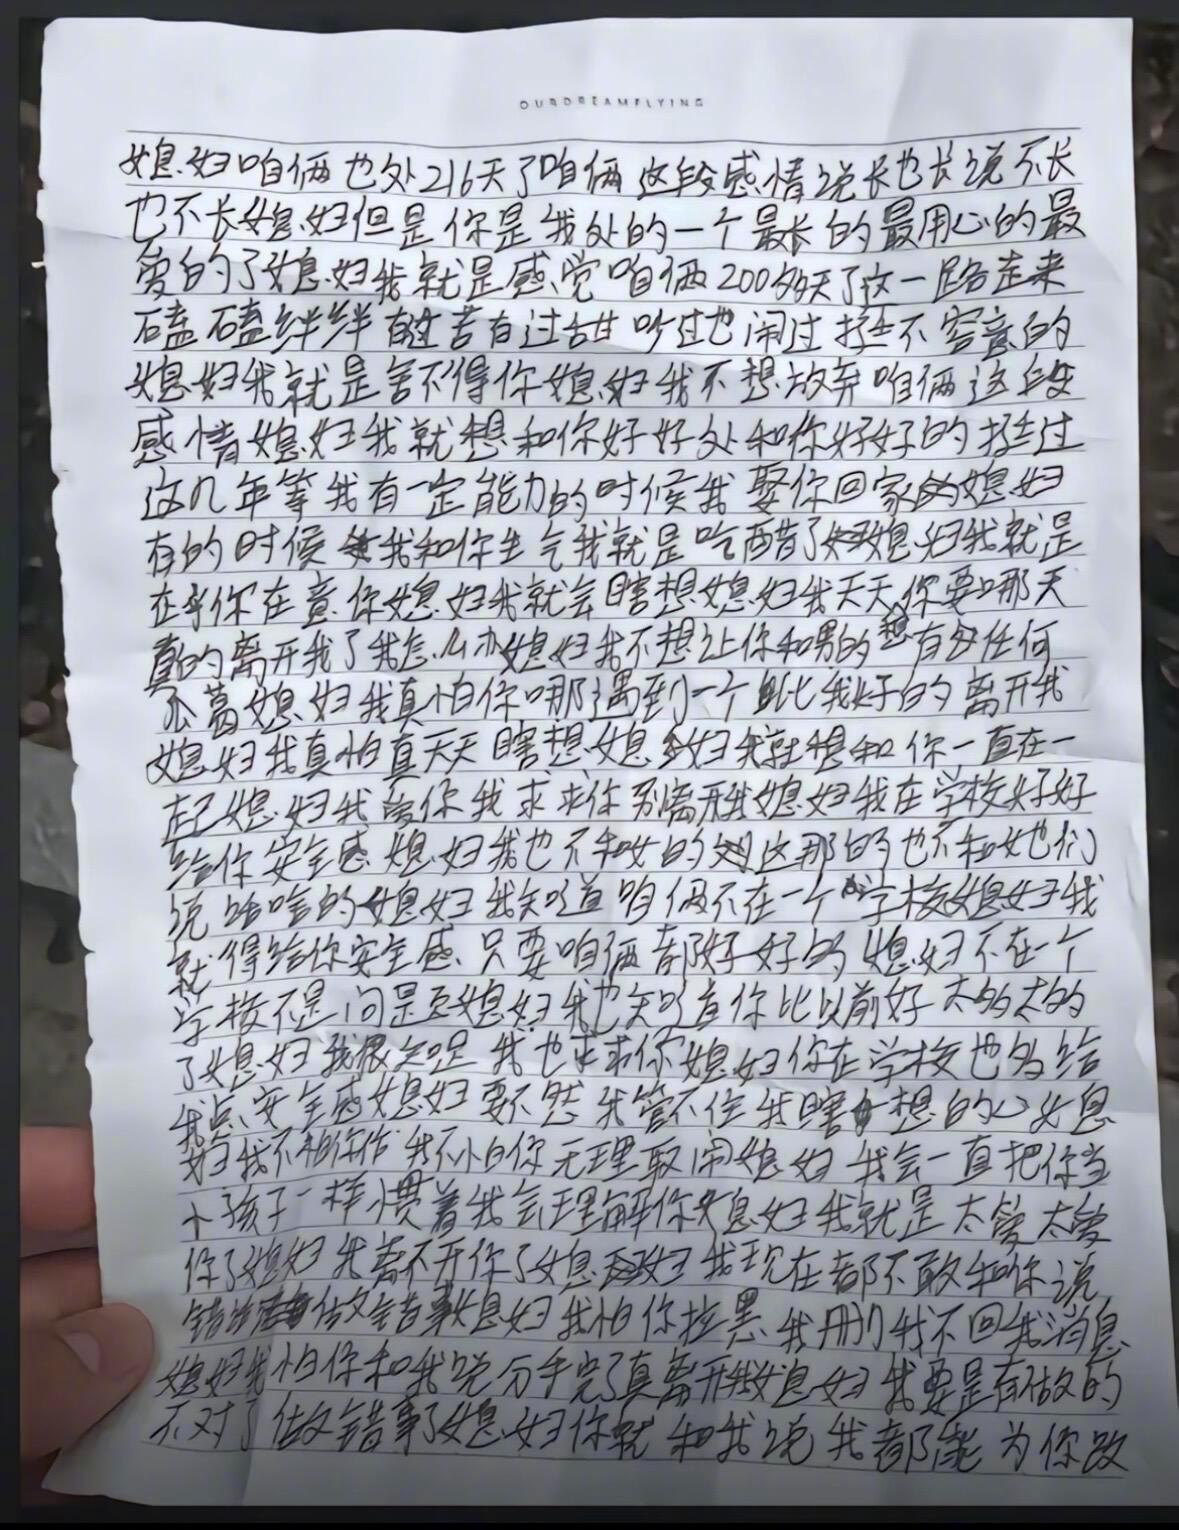 OURDREAMFLYING
媳妇咱俩也处216天了咱俩这段感情说长也长说不长
也不长媳妇但是你是我处的一个最长的最用心的最
爱的了媳妇我就是感觉咱俩200多天了这一路走来
磕磕绊绊有过苦有过甜吵过也闹过挺不容意的
媳妇我就是舍不得你媳妇我不想放弃咱俩这段
感情媳妇我就想和你好好处和你好好的挺过
这几年等我有一定能力的时候我娶你回家媳妇
有的时候我和你生气我就是吃醋了媳妇我就是
在乎你在意你媳妇我就会瞎想媳妇我天天你要哪天
真的离开我了我怎么办媳妇我不想让你和男的有任何
瓜葛媳妇我真怕你哪遇到一个比我好的离开我
媳妇我真怕真天天瞎想媳妇我就想和你一直在一
起媳妇我爱你我求求你别离开我媳妇我在学校好好
给你安全感媳妇我也不和女的这那的也不和她们
说啥啥的媳妇我知道咱俩不在一个学校媳妇我
就得给你安全感只要咱俩都好好的媳妇不在一个
学校不是问是至媳妇我也知道你比以前好太多太多的
了媳妇我很知足我也求求你媳妇你在学校也多给
我点安全感媳妇要不然我管不住我瞎想的心媳
妇我不和你作我不怕你无理取闹媳妇我会一直把你当
小孩子一样惯着我会理解你媳妇我就是太爱太爱
你了媳妇我离不开你了媳妇我现在都不敢和你说
错话做错事媳妇我怕你拉黑我删我不回我消息
媳妇我怕你和我说分手完了真离开我媳妇我要是有做的
不对了做错事了媳妇你就和我说我都能为你改